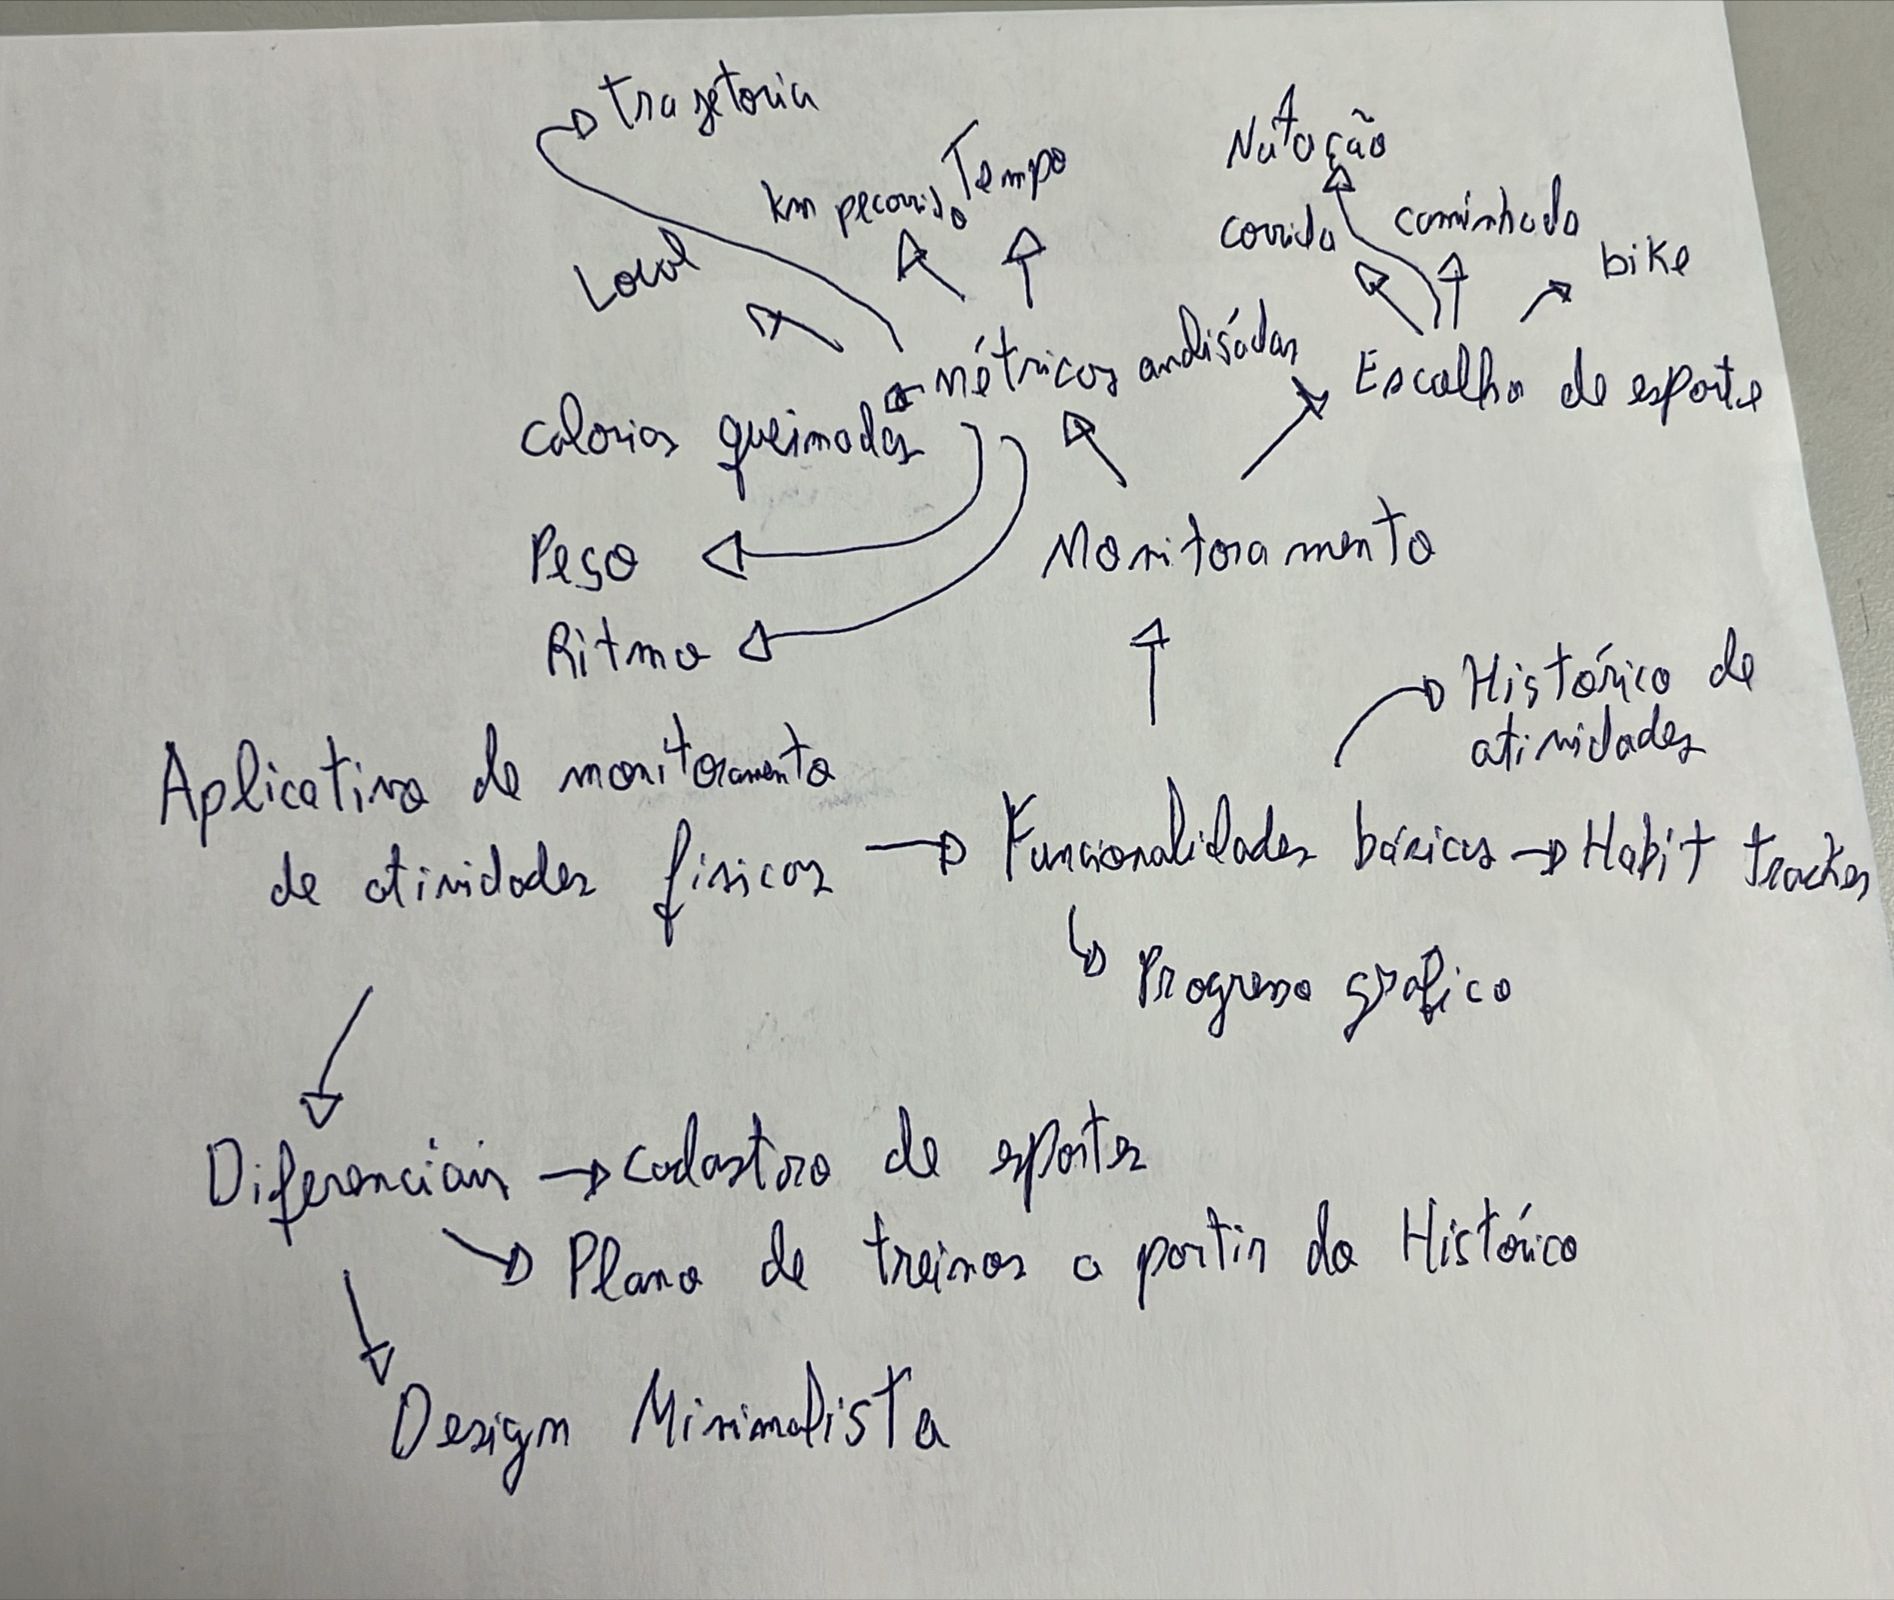 trajetoria
km pecorrido
Tempo
Natação
corrida
caminhada
bike
Local
Métricas analisádas
Escolha de esporte
Calorias queimadas
Peso
Monitoramento
Ritmo
Histórico de
atividades
Aplicativo de monitoramento
de atividades físicas
Funcionalidades básicas
Habit tracker
Progresso gráfico
Diferenciais
Cadastro de esportes
Plano de treinos a partir do Histórico
Design Minimalista